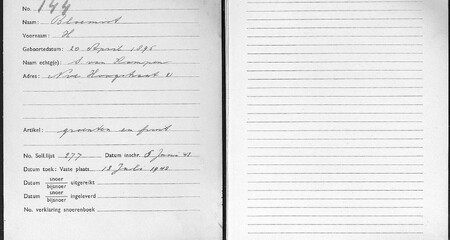 No. 144
Naam: Bloemist
Voornaam: H
Geboortedatum: 20 April 1895
Naam echtg(e): S van Kampen
Adres: Nwe Hoogstraat 21
Artikel: groenten en fruit
No. Soll.lijst 277 Datum inschr. 5 Juni 42
Datum toek: Vaste plaats 13 Juli 1942
Datum snoer/bijsnoer uitgereikt
Datum snoer/bijsnoer ingeleverd
No. verklaring snoerenboek